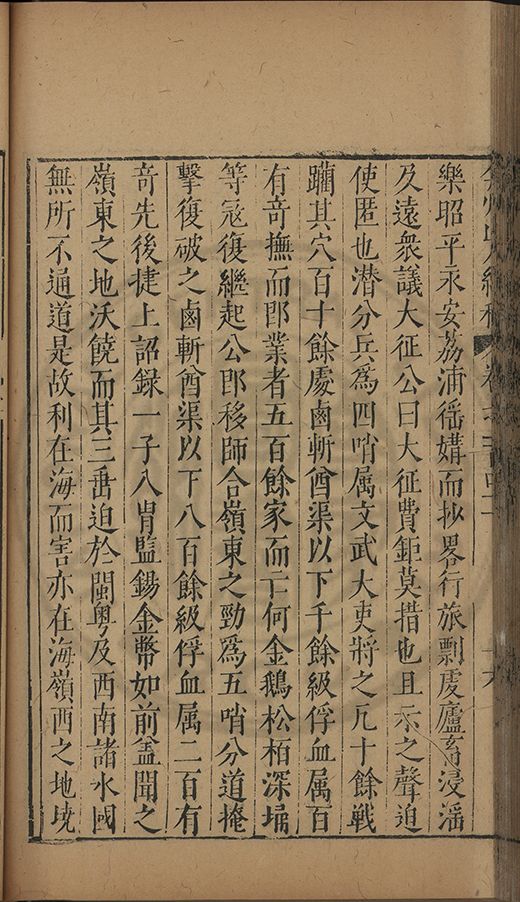 樂昭平永安荔浦徭媾而抄畧行旅剽虔廬畜浸滛
及遠衆議大征公曰大征費鉅莫措也且示之聲迫
使匿也潜分兵爲四哨属文武大吏將之凡十餘戦
躪其穴百十餘處鹵斬酋渠以下千餘級俘血属百
有奇撫而郎業者五百餘家而亡何金鵝松栢深埇
等寇復繼起公郎移師合嶺東之勁爲五哨分道掩
擊復破之鹵斬酋渠以下八百餘級俘血属二百有
奇先後捷上詔録一子入胄監錫金幣如前盖聞之
嶺東之地沃饒而其三埀迫於閩粤及西南諸水國
無所不通道是故利在海而害亦在海嶺西之地墝